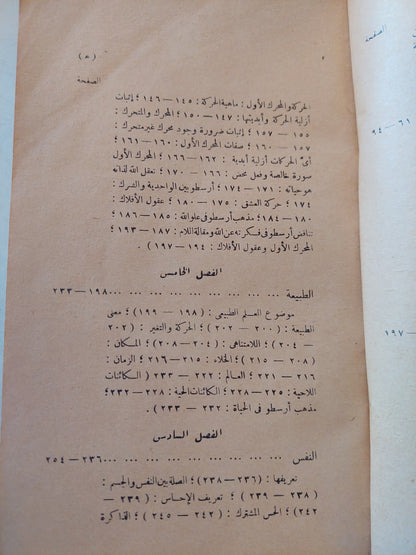 ( ح )
الصفحة
الحركة والمحرك الأول : ماهية الحركة : ١٤٥ — ١٤٦ ؛ إثبات
أزلية الحركة وأبديتها : ١٤٧ — ١٥٠ ؛ المحرك والمتحرك :
١٥٥ — ١٥٧ ؛ إثبات ضرورة وجود محرك غير متحرك :
١٥٧ — ١٦٠ ؛ صفات المحرك الأول : ١٦٠ — ١٦١ ؛
أىّ الحركات أزلية أبدية : ١٦٢ — ١٦٦ ؛ المحرك الأول
صورة خالصة وفعل محض : ١٦٦ — ١٧٠ ؛ تعقل الله لذاته
هو حياته : ١٧١ — ١٧٤ ؛ أرسطو بين الواحدية والشرك :
١٧٤ ؛ حركة العشق : ١٧٥ — ١٨٠ ؛ عقول الأفلاك :
١٨٠ — ١٨٤ ؛ مذهب أرسطو فى علو الله : ١٨٥ — ١٨٦ ؛
تناقض أرسطو فى فكرته عن الله ومقالة اللام : ١٨٧ — ١٩٣ ؛
المحرك الأول وعقول الأفلاك : ١٩٤ — ١٩٧ ) .
الفصل الخامس
الطبيعة ... ... ... ... ... ... ... ... ١٩٨ — ٢٣٣
موضوع العلم الطبيعى : ( ١٩٨ — ١٩٩ ) ؛ معنى
الطبيعة : ( ٢٠٠ — ٢٠٢ ) ؛ الحركة والتغير : ( ٢٠٢
— ٢٠٤ ) ؛ اللامتناهى : ( ٢٠٤ — ٢٠٨ ) ؛ المكان :
( ٢٠٨ — ٢١٥ ) ؛ الخلاء : ٢١٥ — ٢١٦ ؛ الزمان :
٢١٦ — ٢٢١ ؛ العالم : ٢٢٢ — ٢٣٣ ( الكائنات
اللاحية : ٢٢٥ — ٢٢٨ ؛ الكائنات الحية : ٢٢٨ — ٢٣٢ ؛
مذهب أرسطو فى الحياة : ٢٣٢ — ٢٣٣ ) .
الفصل السادس
النفس ... ... ... ... ... ... ... ... ٢٣٦ — ٢٥٤
تعريفها : ( ٢٣٦ — ٢٣٨ ) ؛ الصلة بين النفس والجسم :
( ٢٣٨ — ٢٣٩ ) ؛ تعريف الإحساس : ( ٢٣٩ —
٢٤٢ ) ؛ الحس المشترك : ( ٢٤٢ — ٢٤٥ ) ؛ الذاكرة
الصفحة
٦١ — ٩٤
١٩٧ —